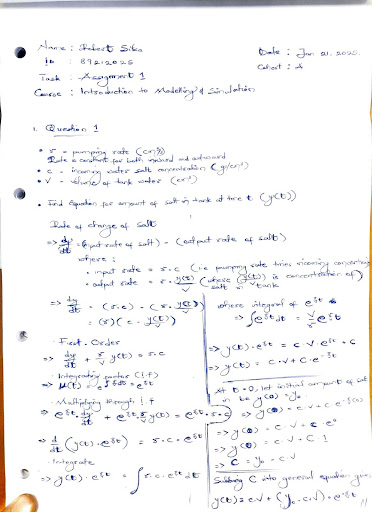 Name : Robert Silas
Date : Jan 21, 2025.
ID : 89212025
Cohort : A
Task : Assignment 1
Course : Introduction to Modelling & Simulation
1. Question 1
• r = pumping rate (cm³/s)
Rate is constant for both inward and outward
• c = incoming water salt concentration (g/cm³)
• V = volume of tank water (cm³)
• Find equation for amount of salt in tank at time t (y(t))
Rate of change of salt
=> dy/dt = (input rate of salt) - (output rate of salt)
where :
• input rate = r.c (i.e pumping rate times incoming concentration)
• output rate = r. y(t)/V (where (y(t)/V) is concentration of salt in tank)
=> dy/dt = (r.c) - (r. y(t)/V)
= (r)(c - y(t)/V)
First - Order
=> dy/dt + r/V y(t) = r.c
• Integrating factor (I.f)
=> μ(t) = e^∫r/V dt = e^r/V t
• Multiplying through I.f
=> e^r/V t. dy/dt + e^r/V t. r/V y(t) = e^r/V t. r.c
=> d/dt (y(t). e^r/V t) = r.c. e^r/V t
• Integrate
=> y(t). e^r/V t = ∫ r.c. e^r/V t dt
where integral of e^r/V t is
=> ∫ e^r/V t dt = V/r e^r/V t
=> y(t). e^r/V t = c.V. e^r/V t + C
=> y(t) = c.V + C. e^-r/V t
At t = 0, let initial amount of salt
in be y(0) = y₀.
=> y(0) = c.V + C. e^-r/V (0)
=> y(0) = c.V + C. e⁰
=> y(0) = c.V + C. 1
=> C = y₀ - c.V
Subbing C into general equation gives
y(t) = c.V + (y₀ - c.V). e^-r/V t //